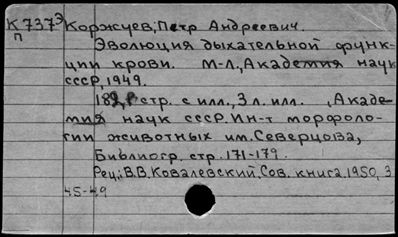 К 737Э Коржуев, Петр Андреевич.
П
Эволюция дыхательной функ-
ции крови. М-Л., Академия наук
СССР, 1949.
182 стр. с илл., 3 л. илл. , Акаде-
мия наук СССР. Ин-т морфоло-
гии животных им. Северцова,
Библиогр. стр. 171-179.
Рец.: В.В. Ковалевский. Сов. книга. 1950, 3
45-49